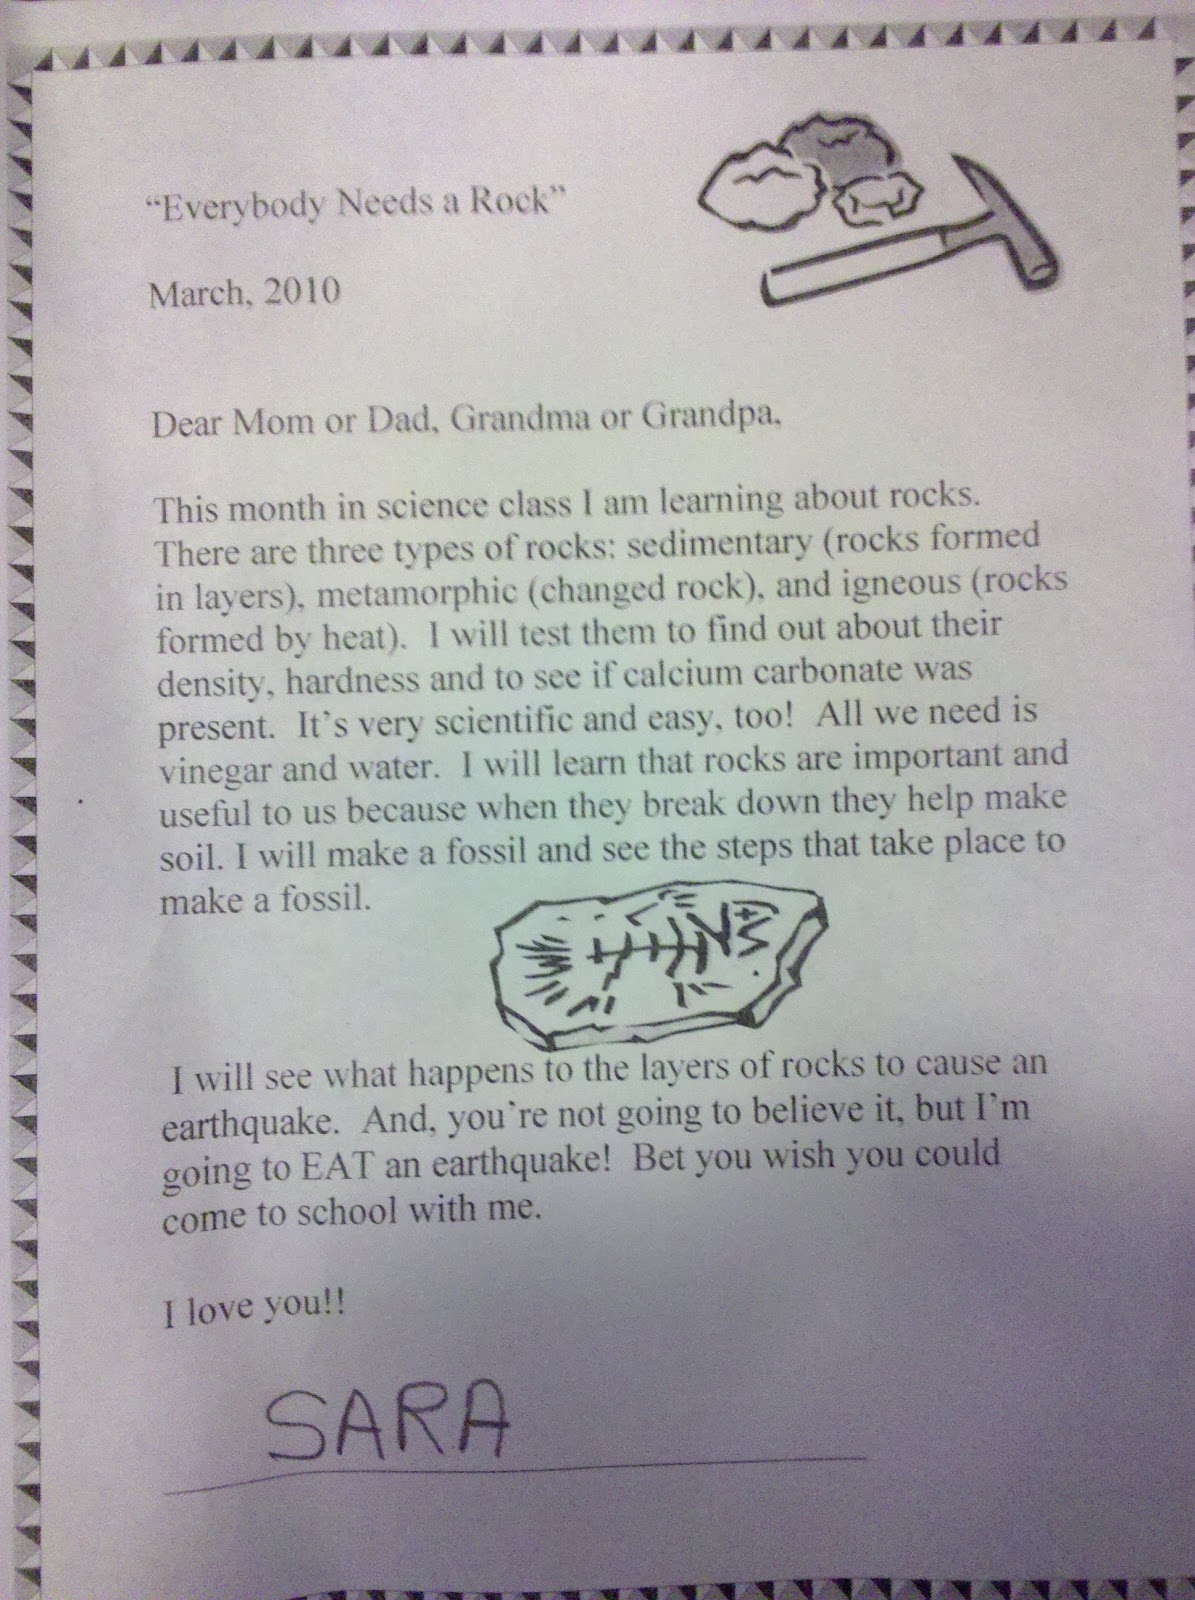 “Everybody Needs a Rock”
March, 2010
Dear Mom or Dad, Grandma or Grandpa,
This month in science class I am learning about rocks.
There are three types of rocks: sedimentary (rocks formed
in layers), metamorphic (changed rock), and igneous (rocks
formed by heat).  I will test them to find out about their
density, hardness and to see if calcium carbonate was
present.  It’s very scientific and easy, too!  All we need is
vinegar and water.  I will learn that rocks are important and
useful to us because when they break down they help make
soil. I will make a fossil and see the steps that take place to
make a fossil.
I will see what happens to the layers of rocks to cause an
earthquake.  And, you’re not going to believe it, but I’m
going to EAT an earthquake!  Bet you wish you could
come to school with me.
I love you!!
SARA